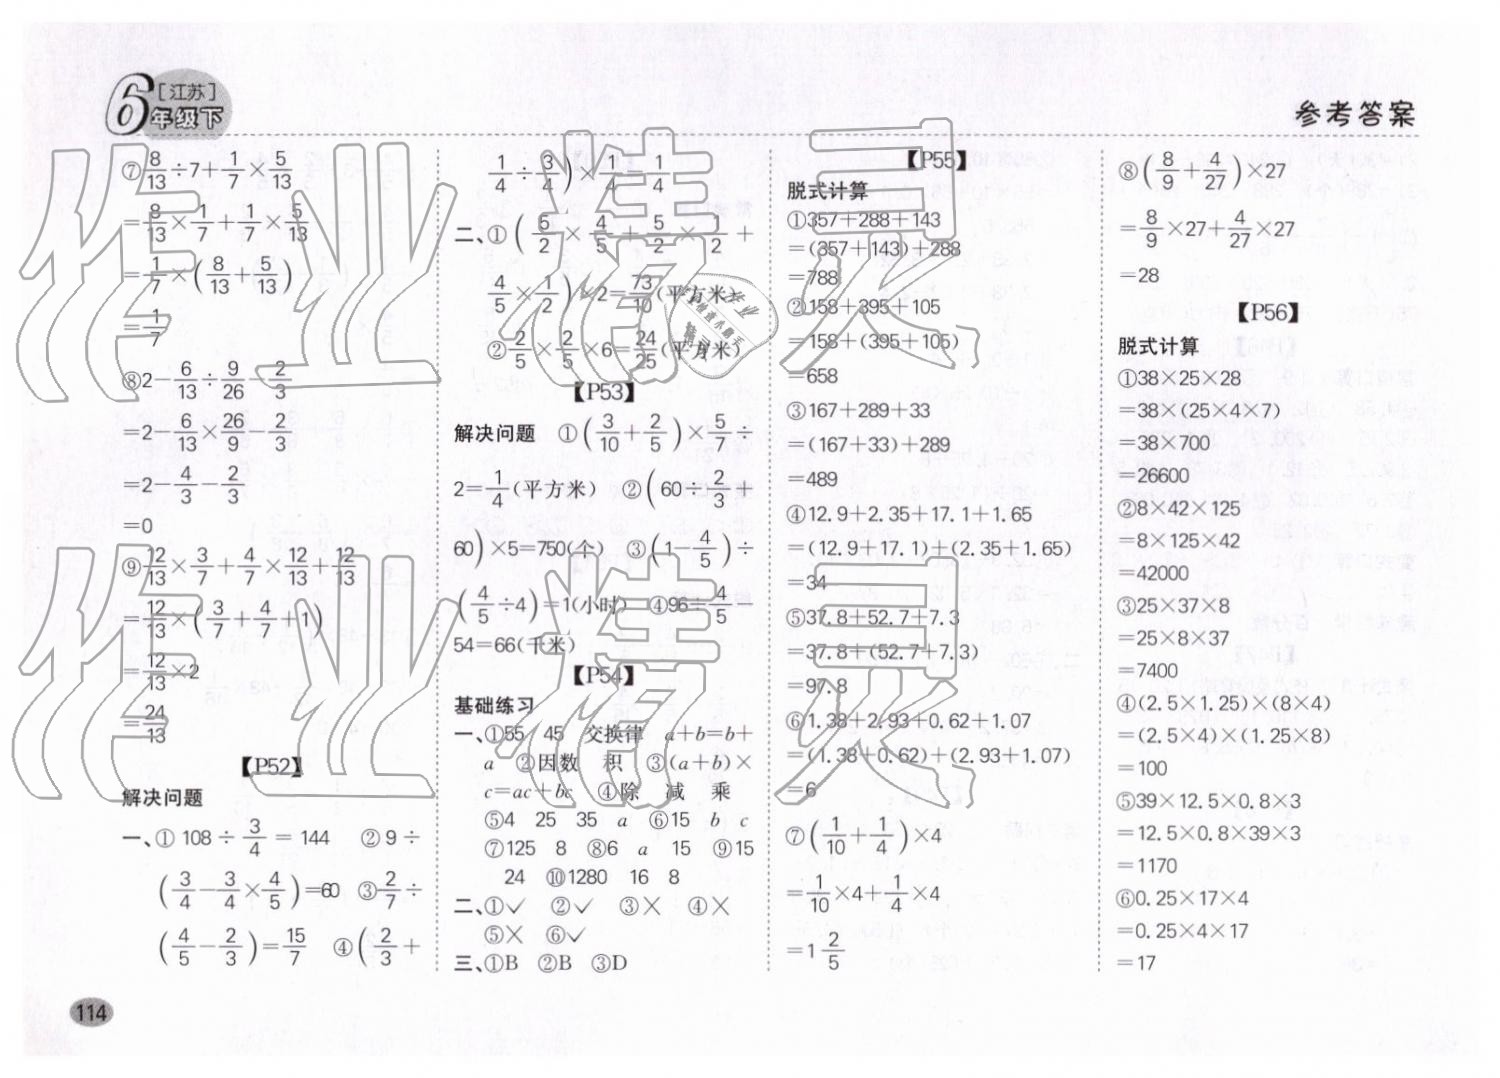 6年级下
[江苏]
参考答案
⑦8/13÷7+1/7×5/13
=8/13×1/7+1/7×5/13
=1/7×(8/13+5/13)
=1/7
⑧2-6/13÷9/26-2/3
=2-6/13×26/9-2/3
=2-4/3-2/3
=0
⑨12/13×3/7+4/7×12/13+12/13
=12/13×(3/7+4/7+1)
=12/13×2
=24/13
【P52】
解决问题
一、①108÷3/4=144 ②9÷
(3/4-3/4×4/5)=60 ③2/7÷
(4/5-2/3)=15/7 ④(2/3+
1/4÷3/4)×1/4=1/4
二、①(6/2×4/5+5/2×1/2+
4/5×1/2)×2=73/10(平方米)
②2/5×2/5×6=24/25(平方米)
【P53】
解决问题 ①(3/10+2/5)×5/7÷
2=1/4(平方米) ②(60÷2/3+
60)×5=750(个) ③(1-4/5)÷
(4/5÷4)=1(小时) ④96÷4/5-
54=66(千米)
【P54】
基础练习
一、①55 45 交换律 a+b=b+
a ②因数 积 ③(a+b)×
c=ac+bc ④除 减 乘
⑤4 25 35 a ⑥15 b c
⑦125 8 ⑧6 a 15 ⑨15
24 ⑩1280 16 8
二、①✓ ②✓ ③× ④×
⑤× ⑥✓
三、①B ②B ③D
【P55】
脱式计算
①357+288+143
=(357+143)+288
=788
②158+395+105
=158+(395+105)
=658
③167+289+33
=(167+33)+289
=489
④12.9+2.35+17.1+1.65
=(12.9+17.1)+(2.35+1.65)
=34
⑤37.8+52.7+7.3
=37.8+(52.7+7.3)
=97.8
⑥1.38+2.93+0.62+1.07
=(1.38+0.62)+(2.93+1.07)
=6
⑦(1/10+1/4)×4
=1/10×4+1/4×4
=1 2/5
⑧(8/9+4/27)×27
=8/9×27+4/27×27
=28
【P56】
脱式计算
①38×25×28
=38×(25×4×7)
=38×700
=26600
②8×42×125
=8×125×42
=42000
③25×37×8
=25×8×37
=7400
④(2.5×1.25)×(8×4)
=(2.5×4)×(1.25×8)
=100
⑤39×12.5×0.8×3
=12.5×0.8×39×3
=1170
⑥0.25×17×4
=0.25×4×17
=17
114
作业精灵
作业精灵